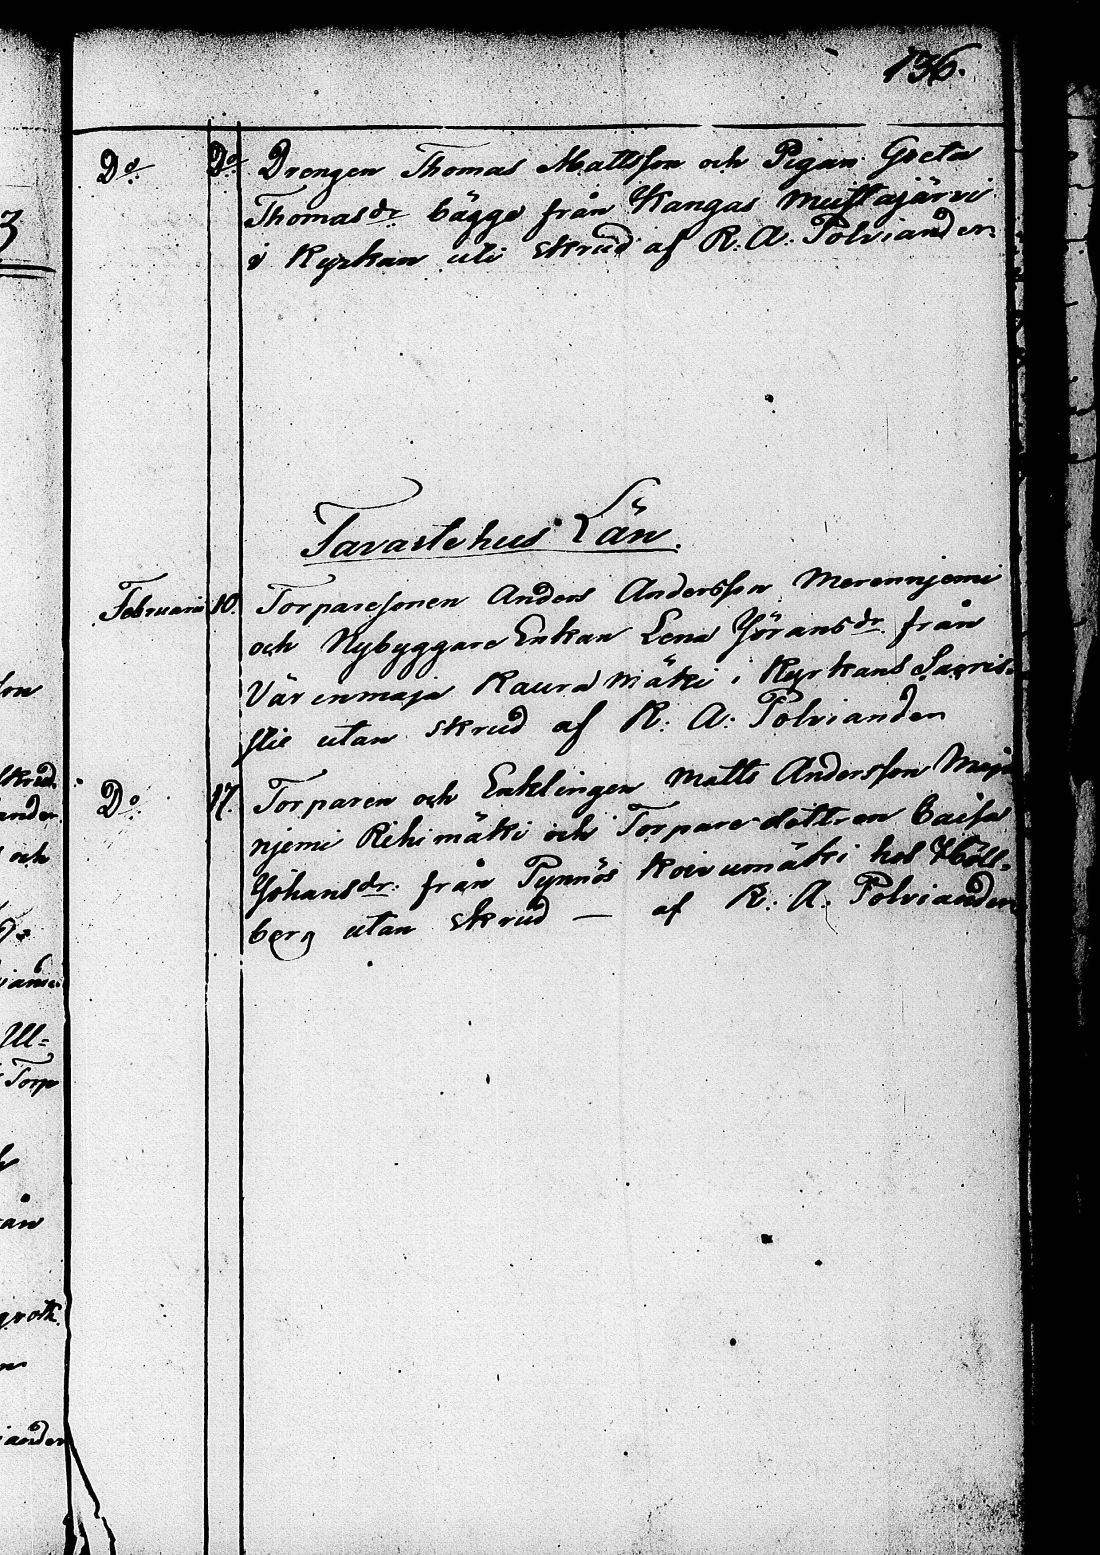 136.
Do Do Drengen Thomas Mattsson och Pigan Greta
Thomasdr bägge från Kangas Mustajärvi
i Kyrkan uti skrud af R. A. Polviander
Tavastehus Län.
Februarii 10. Torparesonen Anders Andersson Merennjemi
och Nybyggare Enkan Lena Jöransdr från
Värenmaja Kaura mäki i Kyrkans Sacris-
stie utan skrud af R. A. Polviander
Do 17. Torparen och Enklingen Matts Andersson Maja
njemi Rihimäki och Torpare dottren Caisa
Johansdr: från Pynnös Koivumäki hos Höll-
berg utan skrud — af R. A. Polviander
3
son
skrud
ander
och
Ull-
Torp
ån
groth
iander